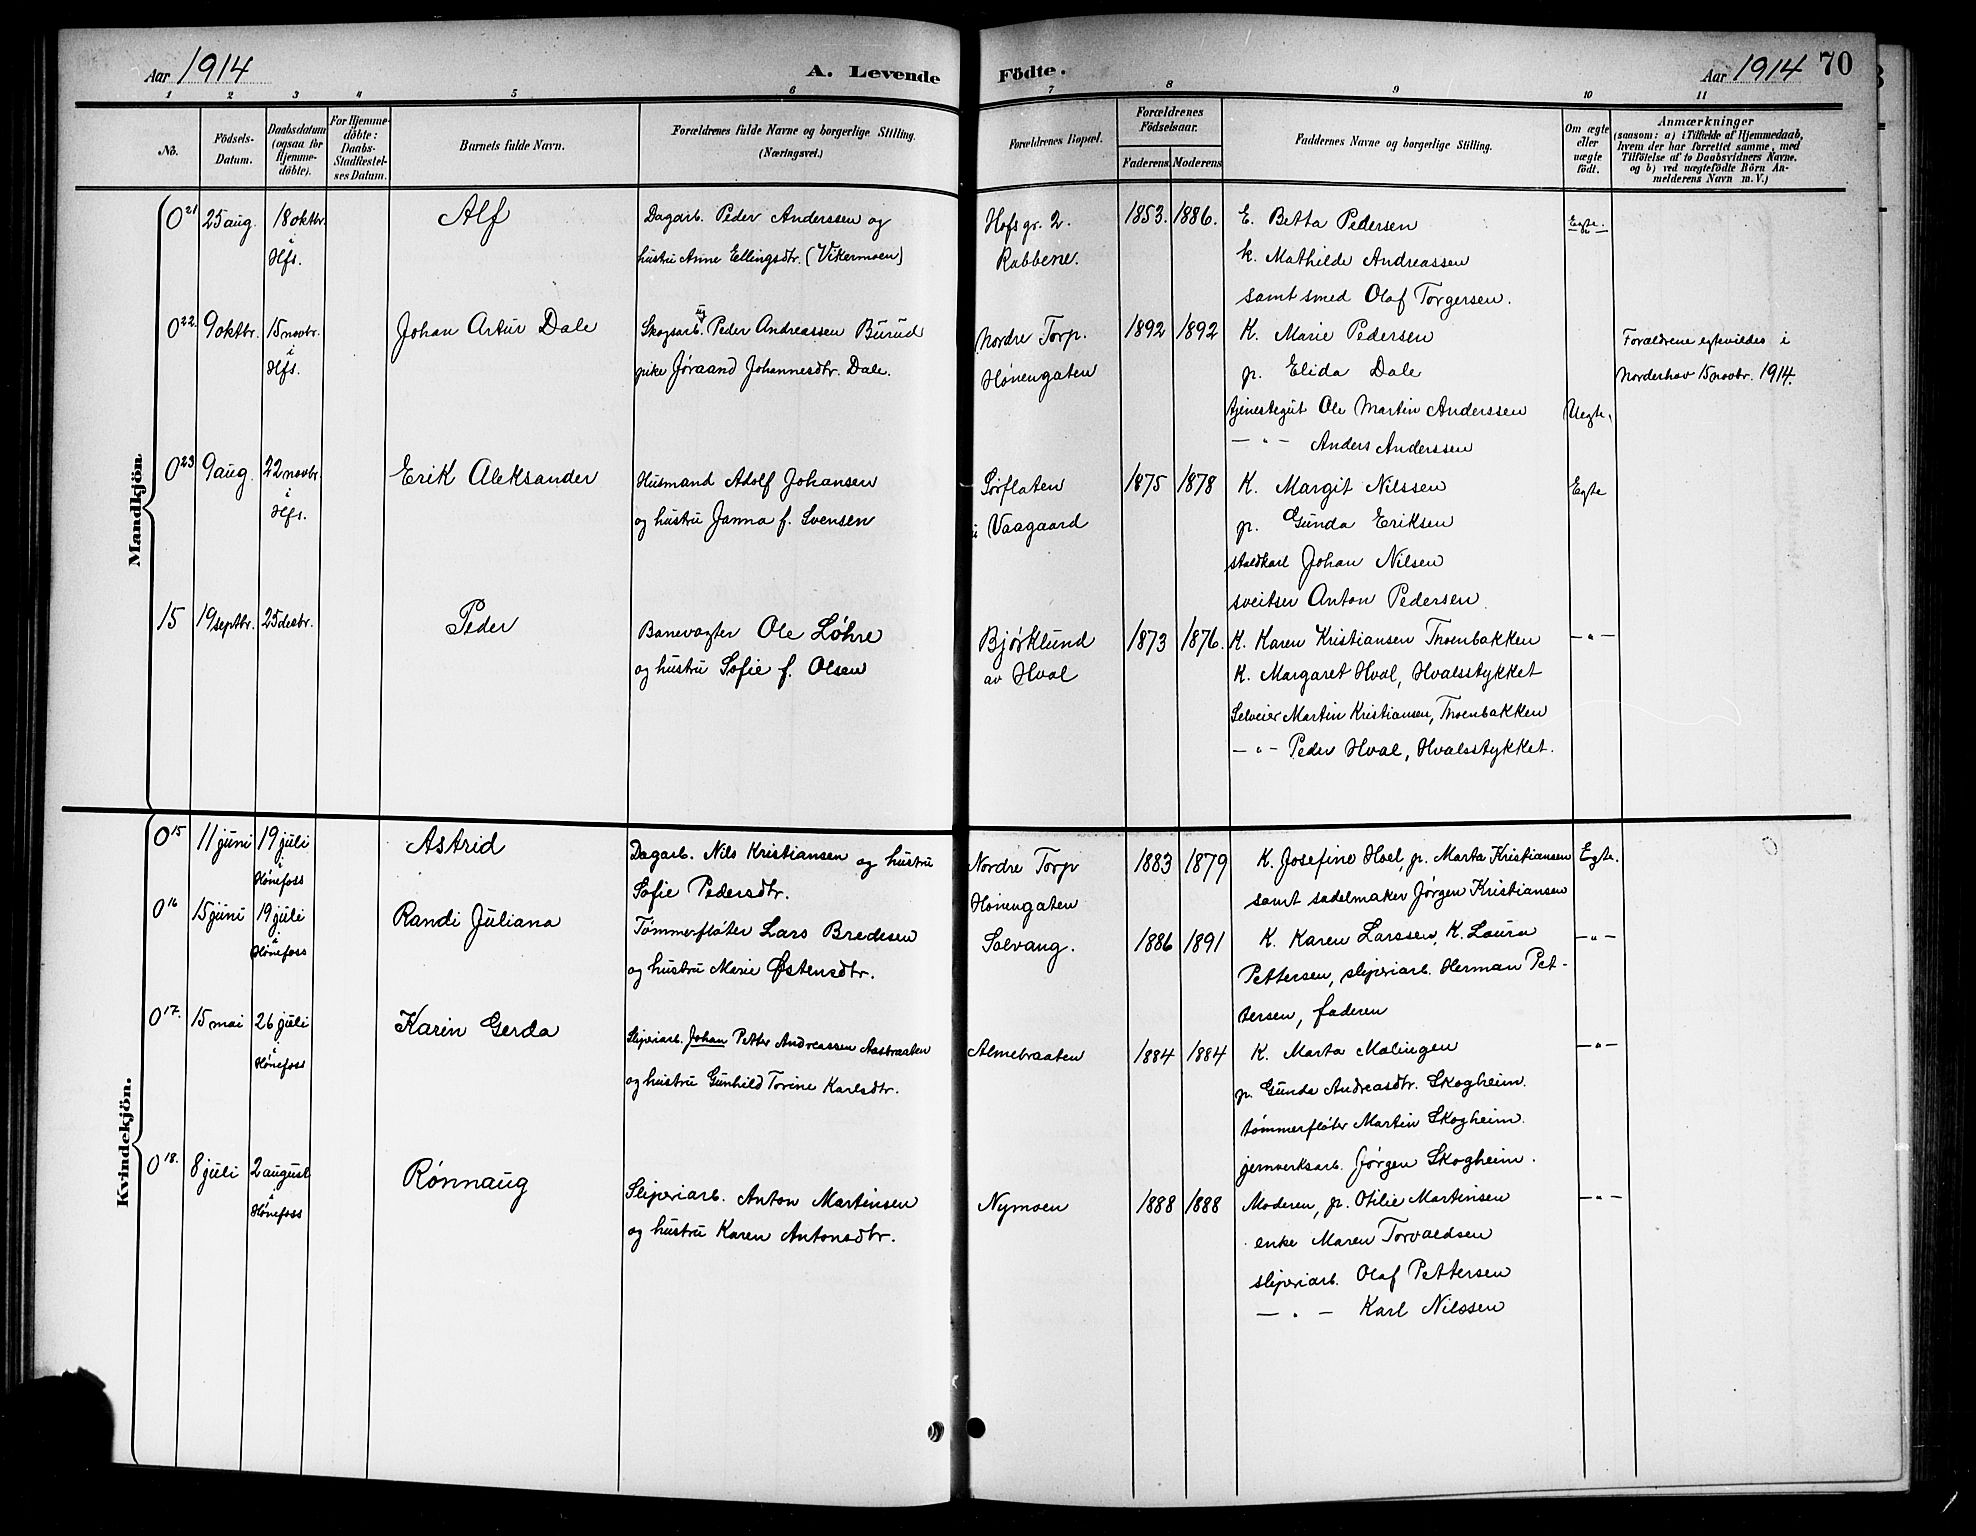 Aar 1914
A. Levende
Födte.
Aar 1914
70
1 2 3 4 5 6
7 8 9 10 11
No.
Födsels-
Datum.
Daabsdatum
(ogsaa for
Hjemme-
döbte).
For Hjemme-
döbte:
Daabs-
Stadfæstel-
ses Datum.
Barnets fulde Navn.
Forældrenes fulde Navne og borgerlige Stilling.
(Næringsvei.)
Forældrenes Bopæl.
Forældrenes
Födselsaar.
Faderens.
Moderens
Faddernes Navne og borgerlige Stilling.
Om ægte
eller
uægte
födt.
Anmærkninger
(saasom: a) i Tilfælde af Hjemmedaab,
hvem der har forrettet samme, med
Tilföielse af to Daabsvidners Navne.
og b) ved uægtefödte Börn An-
melderens Navn m. V.)
Mandkjön.
O 21
25 aug.
18 oktbr.
i
Hfs.
Alf
Dagarb. Peder Anderssen og
hustru Anne Ellingsdtr. (Vikermoen)
Hofsgr. 2.
Rabbene.
1853.
1886.
E. Betta Pedersen
k. Mathilde Andreassen
samt smed Olaf Torgersen.
Egte.
O 22.
9 oktbr.
15 novbr.
i
Hfs.
Johan Artur Dale
Skogsarb. ug Peder Andreassen Burud
pike Jøraand Johannesdtr. Dale.
Nordre Torp.
Hønengaten
1892
1892
K. Marie Pedersen
p. Elida Dale
tjenestegut Ole Martin Anderssen
— " — Anders Anderssen
Uegte.
Forældrene egtevildes i
Norderhov 15 novbr. 1914.
O 23
9 aug.
22 novbr.
i
Hfs.
Erik Aleksander
Husmand Adolf Johansen
og hustru Janna f. Svensen
Sørflaten
i Vaagaard
1875
1878
K. Margit Nilssen
p. Gunda Eriksen
staldkarl Johan Nilsen
sveitser Anton Pedersen
Egte
15
19 septbr.
25 desbr.
Peder
Banevogter Ole Løhre
og hustru Sofie f. Olsen
Bjørklund
av Hval
1873
1876.
K. Karen Kristiansen Thoenbakken
K. Margaret Hval, Hvalsstykket
Selveier Martin Kristiansen, Thoenbakken
— " — Peder Hval, Hvalsstykket.
— " —
Kvindekjön.
O 15
11 juni
19 juli
i
Hønefoss
Astrid
Dagarb. Nils Kristiansen og hustru
Sofie Pedersdtr.
Nordre Torp
Hønengaten
1883
1879
K. Josefine Hoel, p. Marta Kristiansen
samt sadelmaker Jørgen Kristiansen
Egte.
O 16
15 juni
19 juli
i
Hønefoss
Randi Juliana
Tømmerfløter Lars Bredesen
og hustru Marie Østensdtr.
Solvang.
1886
1891
K. Karen Larssen, K. Laura
Pettersen, sliperiarb. Herman Pet-
tersen, faderen
— " —
O 17.
15 mai
26 juli
i
Hønefoss
Karin Gerda
Sliperiarb. Johan Petter Andreassen Aasbraaten
og hustru Gunhild Torine Karlsdtr.
Almebraaten
1884
1884
K. Marta Molingen
p. Gunda Andreasdtr. Skogheim.
tømmerfløter Martin Skogheim.
jernverksarb. Jørgen Skogheim.
— " —
O 18.
8 juli
2 august
i
Hønefoss
Rønnaug
Sliperiarb. Anton Martinsen
og hustru Karen Antonsdtr.
Nymoen
1888
1888
Moderen, p. Otilie Martinsen
enke Maren Torvaldsen
sliperiarb. Olaf Pettersen
— " — Karl Nilssen
— " —